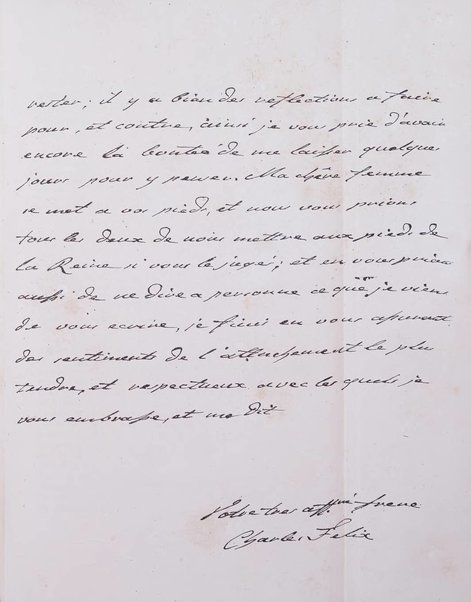 rester; il y a bien des reflections a faire
pour, et contre, ainsi je vous prie d'avoir
encore la bonteé de me laisser quelque
jours pour y penser. Ma chère femme
se met a vos pieds, et nous vous prions
tous les deux de nous mettre aux pieds de
la Reine si vous le jugé; et en vous priant
aussi de ne dire a personne ce que je viens
de vous ecrire, je finis en vous assurant
des sentiments de l'attachement le plus
tendre, et respectueux avec les quels je
vous embrasse, et me dit
Votre tres aff.né frere
Charles Felix